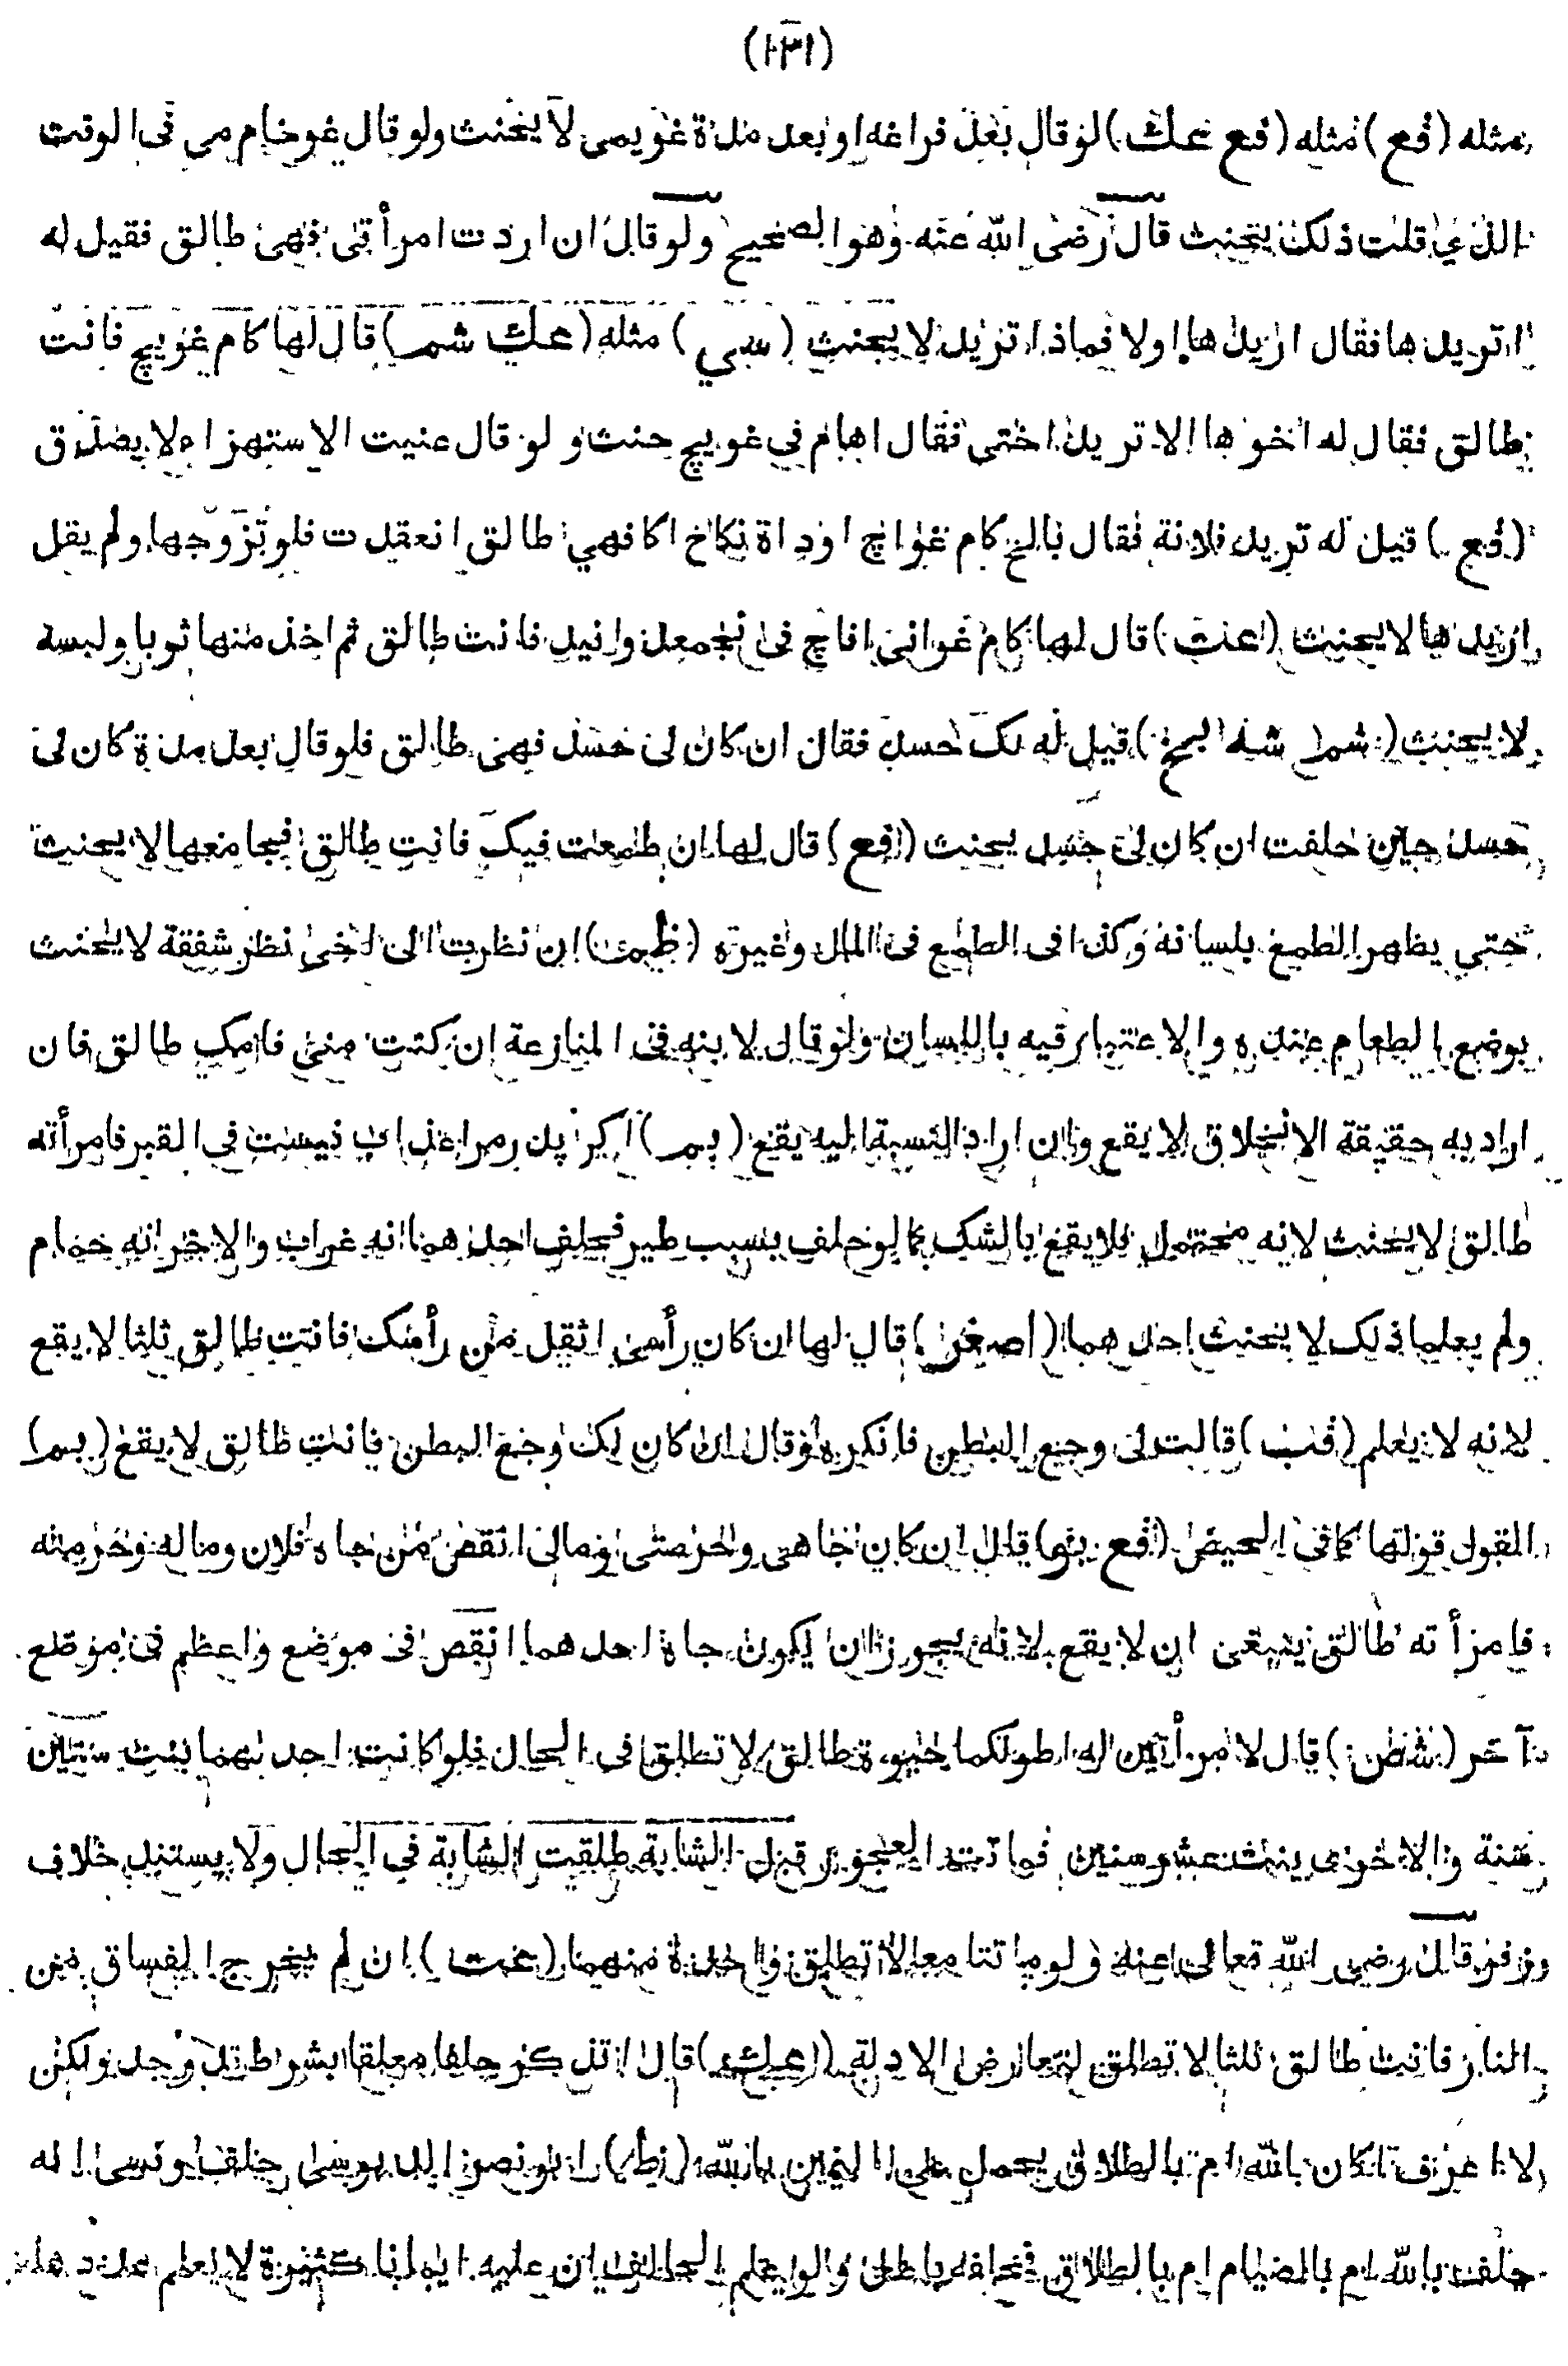 (١٣١)
مثله (فع) مثله (فع عك) لو قال بعد فراغه او بعد مدة غويمى لا يحنث ولو قال غوخام مى فى الوقت
الذى قلت ذلك يحنث قال رضى الله عنه وهو الصحيح ولو قال ان اردت امرأتى فهى طالق فقيل له
اتريدها فقال اريدها اولا فماذا تريد لا يحنث (سي) مثله (عك شم) قال لها كام غوييج فانت
طالق فقال له اخوها الا تريد اختى فقال اهام فى غوييج حنث ولو قال عنيت الاستهزاء لا يصدق
(فع) قيل له تريد فلانة فقال بالخ كام غواج اوداة نكاخ اكا فهي طالق انعقدت فلو تزوجها ولم يقل
اريدها لا يحنث (عت) قال لها كام غوانى افاج فى نجمعد وانيد فانت طالق ثم اخذ منها ثوبا ولبسه
لا يحنث (شم شد بخ) قيل له لك حسد فقال ان كان لى حسد فهى طالق فلو قال بعد مدة كان لى
حسد حين حلفت ان كان لى حسد يحنث (فع) قال لها ان طمعت فيك فانت طالق فجامعها لا يحنث
حتى يظهر الطمع بلسانه وكذا فى الطمع فى المال وغيره (ظمت) ان نظرت الى اخى نظر شفقة لا يحنث
بوضع الطعام عنده والاعتبار فيه باللسان ولو قال لابنه فى المنازعة ان كنت منى فامك طالق فان
اراد به حقيقة الانخلاق لا يقع وان اراد النسبة اليه يقع (بم) اكر پدرمرا عذاب نيست فى القبر فامرأته
طالق لا يحنث لانه محتمل فلا يقع بالشك كما لو حلف بسبب طير فحلف احدهما انه غراب والاخر انه حمام
ولم يعلما ذلك لا يحنث احدهما (صغر) قال لها ان كان رأسى اثقل من رأسك فانت طالق ثلثا لا يقع
لانه لا يعلم (قب) قالت لى وجع البطن فانكره وقال ان كان لك وجع البطن فانت طالق لا يقع (بم)
القول قولها كما فى الحيض (فع بم) قال ان كان جاهى وحرمتى ومالى انقص من جاه فلان وماله وحرمته
فامرأته طالق ينبغى ان لا يقع لانه يجوز ان يكون جاه احدهما انقص فى موضع واعظم فى موضع
آخر (شظ) قال لامرأتين له اطولكما حيوة طالق لا تطلق فى الحال فلو كانت احديهما بنت ستين
سنة والاخرى بنت عشر سنين فماتت العجوز قبل الشابة طلقت الشابة فى الحال ولا يستند خلاف
زفر قال رضى الله تعالى عنه ولو ماتتا معا لا تطلق واحدة منهما (عت) ان لم يخرج الفساق من
النار فانت طالق ثلثا لا تطلق لتعارض الادلة (عك) قال اتذكر حلفا معلقا بشرط قد وجد ولكن
لا اعرف اكان بالله ام بالطلاق يحمل على اليمين بالله (ط) ابو نصر ابو يوسى حلف ونسى انه
حلف بالله ام بالصيام ام بالطلاق فحلفه باطل ولو يعلم الحالف ان عليه ايمانا كثيرة لا يعلم عددها